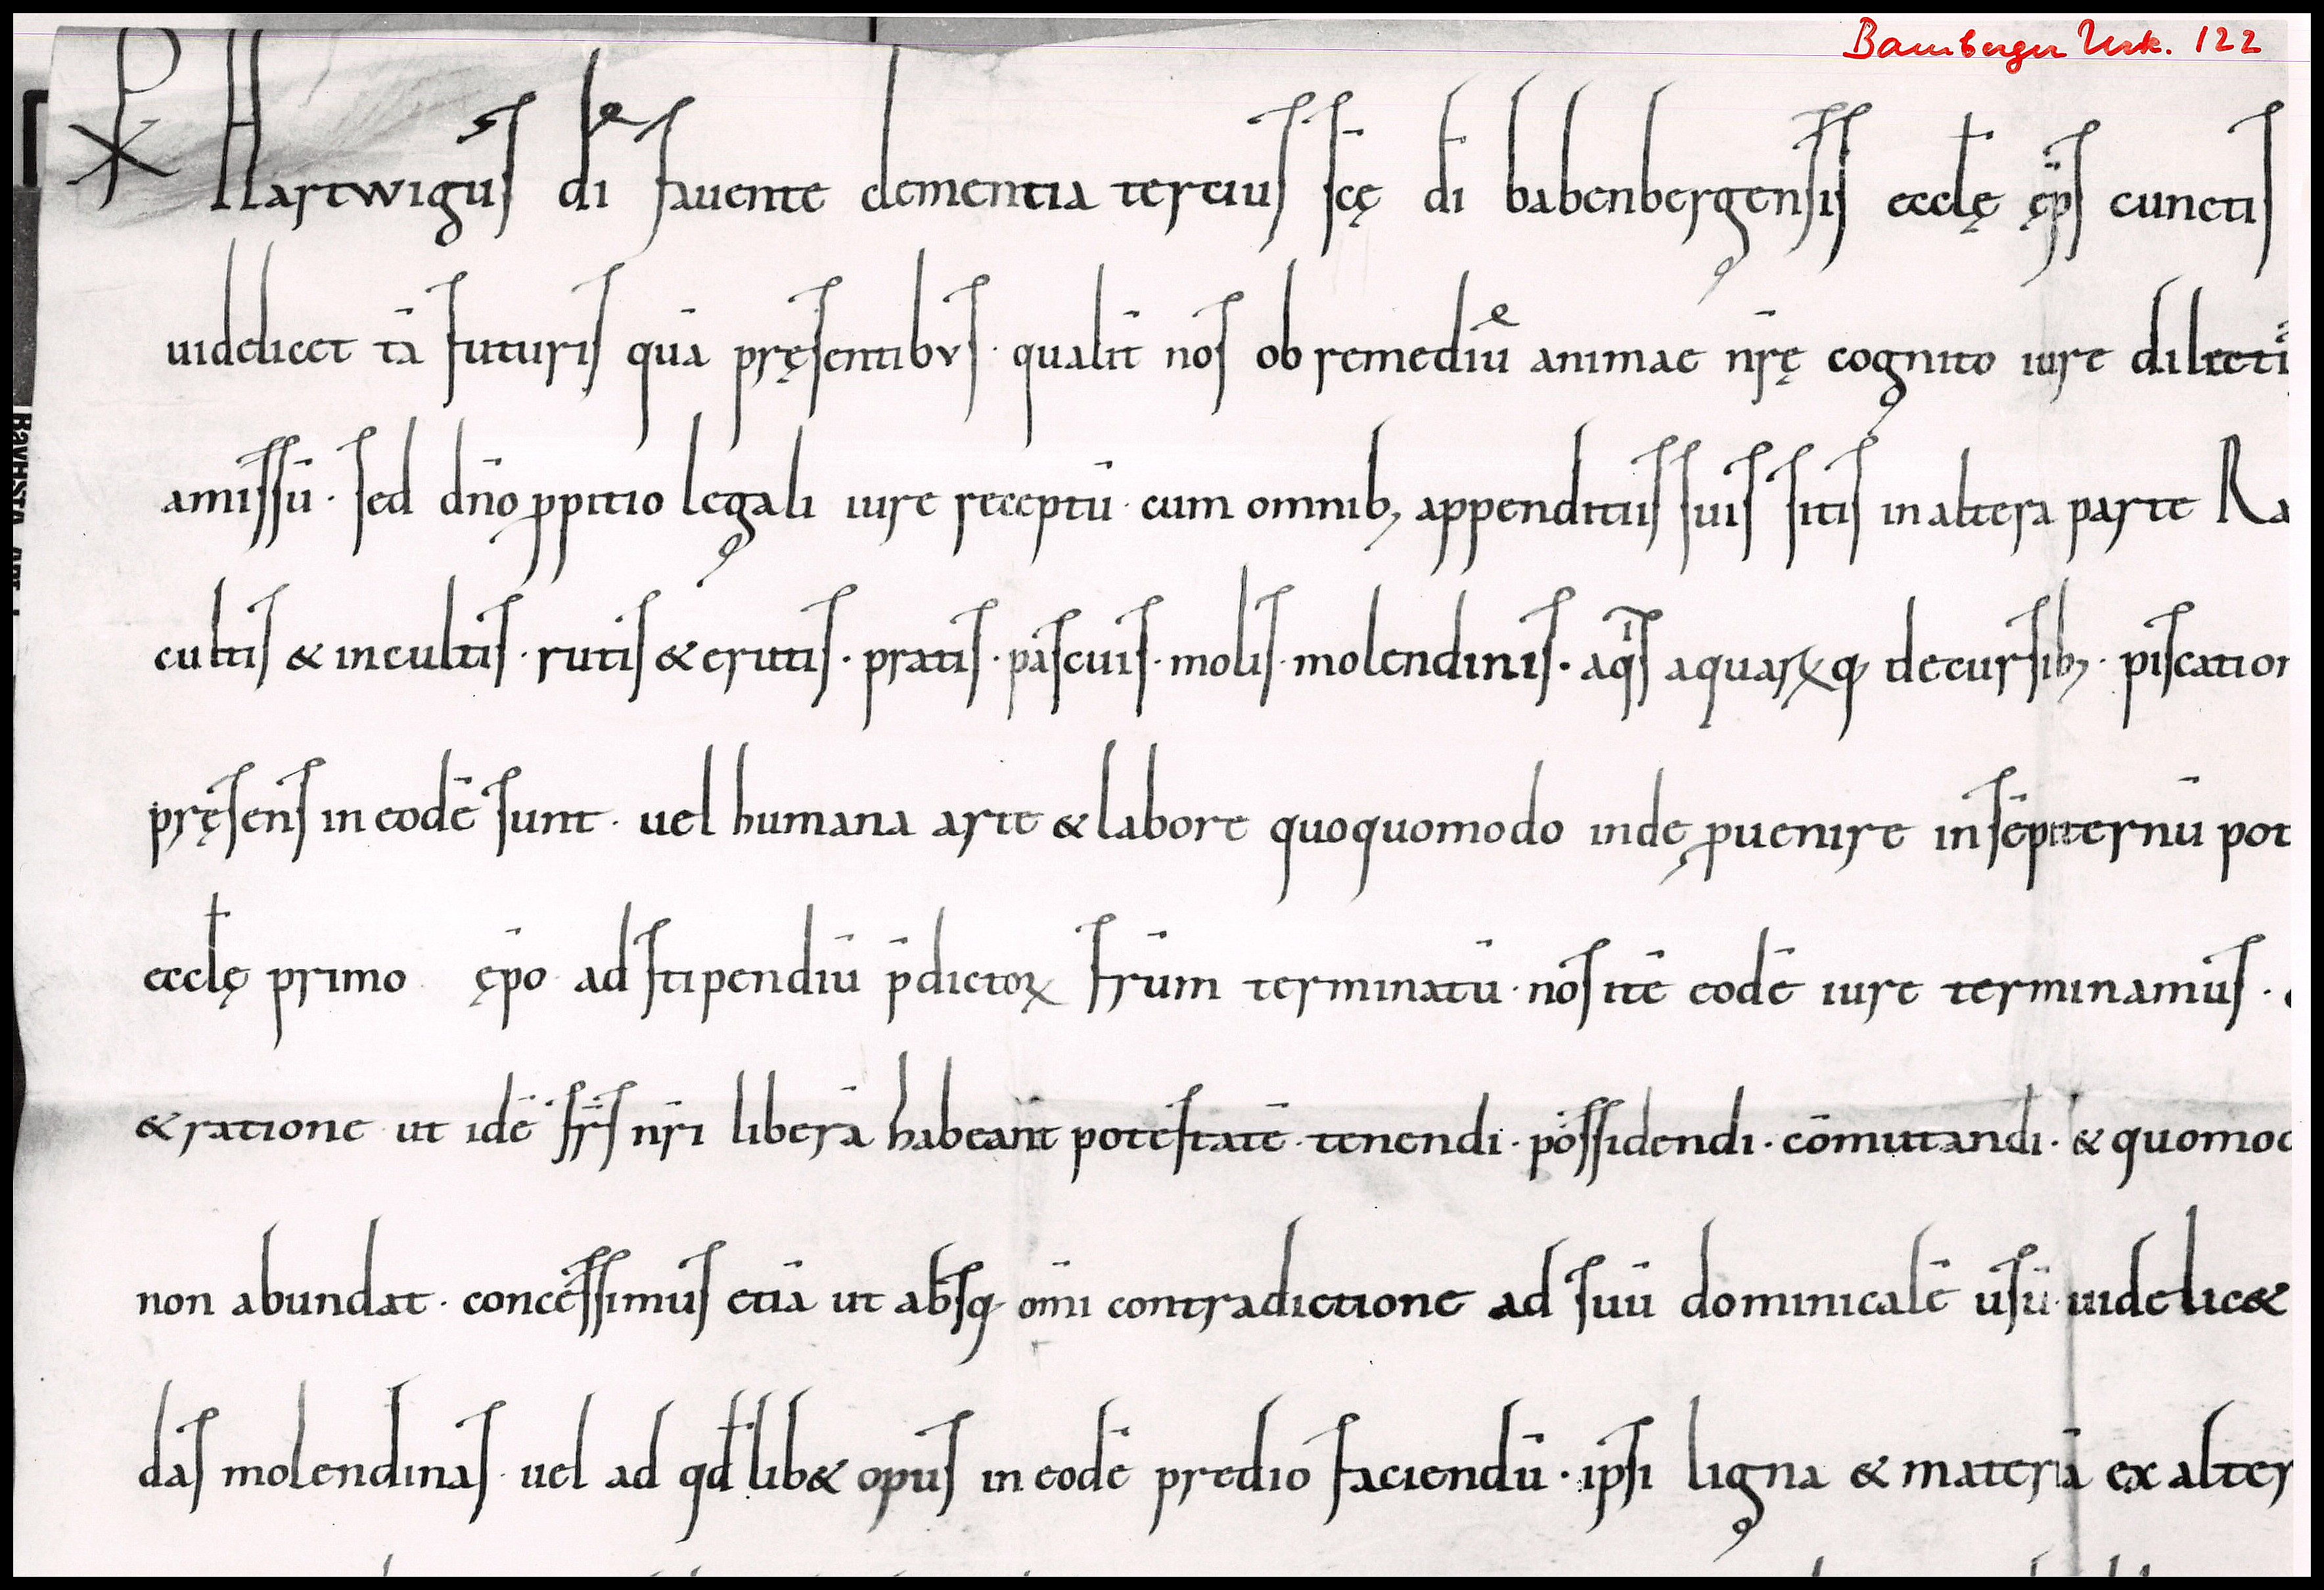 Bamberger Urk. 122
☧ Hartwigus dī fauente clementia tercius scę dī babenbergensis ecclę ęp̄s cunctis
uidelicet tā futuris quā pręsentibus · qualit̄ nos ob remediū animae nr̄ę cognito iure dilecti
amissū · sed dn̄o ꝓpitio legali iure receptū · cum omnibꝫ appenditiis suis sitis in altera parte Ra
cultis & incultis · rutis & erutis · pratis · pascuis · molis · molendinis · aq̄s aquarꝝqꝫ decursibꝫ · piscation
pręsens in eodē sunt · uel humana arte & labore quoquomodo inde ꝓuenire in sēpiternū pot
ecclę primo ęp̄o ad stipendiū p̄dictoꝝ fr̄um terminatū · nos itē eodē iure terminamus ·
& ratione ut idē fr̄s nr̄i liberā habeant potestatē · tenendi · possidendi · cōmutandi · & quomod
non abundat · concessimus etiā ut absqꝫ om̄i contradictione ad suū dominicalē usū · uidelic&
das molendinas · uel ad qd̄lib& opus in eodē predio faciendū · ipsi ligna & materiā ex alter